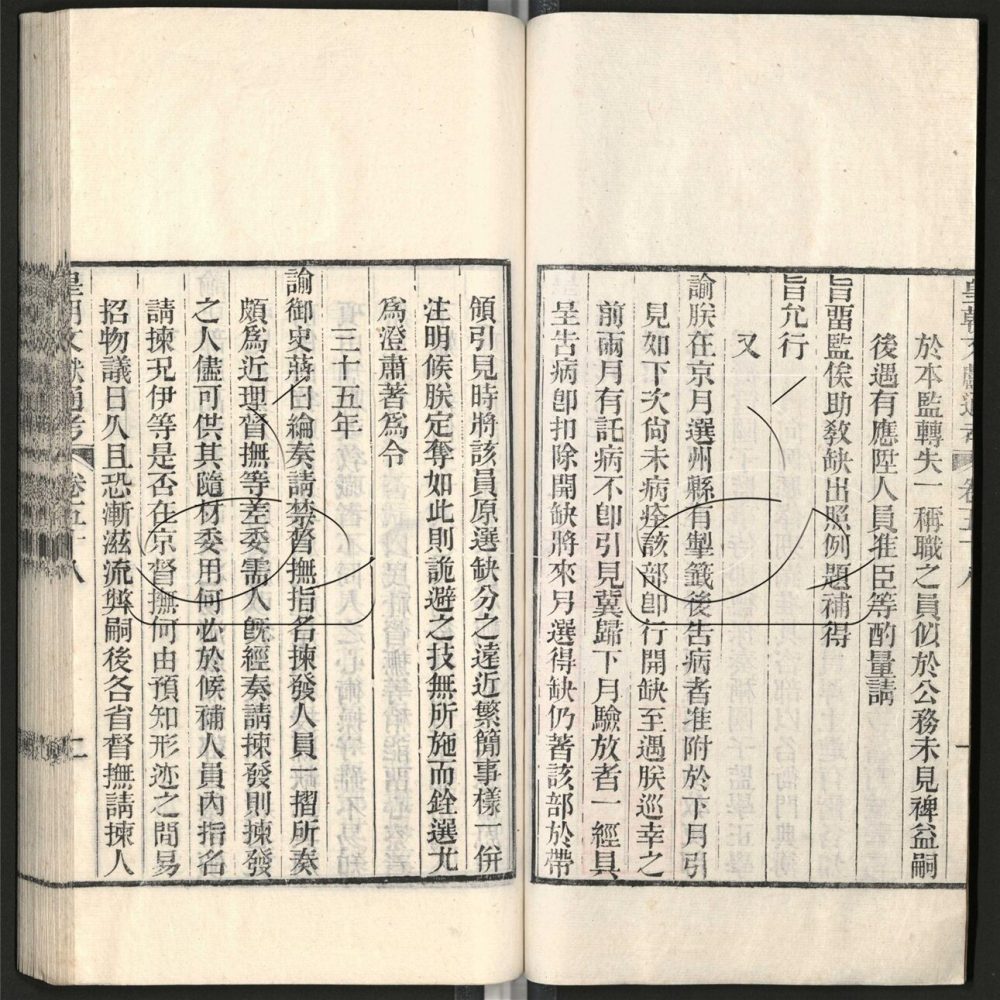 皇朝文獻通考 卷五十八
於本監轉失一稱職之員似於公務未見裨益嗣
後遇有應陞人員准臣等酌量請
旨畱監俟助敎缺出照例題補得
旨允行
又
諭朕在京月選州縣有掣籤後告病者准附於下月引
見如下次尙未病痊該部卽行開缺至遇朕巡幸之
前兩月有託病不卽引見冀歸下月驗放者一經具
呈告病卽扣除開缺將來另選得缺仍著該部於帶
領引見時將該員原選缺分之遠近繁簡事樣一併
注明候朕定奪如此則詭避之技無所施而銓選尤
爲澄肅著爲令
三十五年
諭御史蔣曰綸奏請禁督撫指名揀發人員一摺所奏
頗爲近理督撫等差委需人旣經奏請揀發則揀發
之人儘可供其隨材委用何必於候補人員內指名
請揀況伊等是否在京督撫何由預知形迹之間易
招物議日久且恐漸滋流弊嗣後各省督撫請揀人
皇朝文獻通考 卷五十八